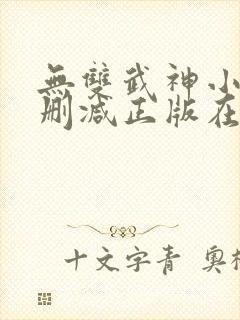 無雙武神小
刪減正版在
十文字青 奧